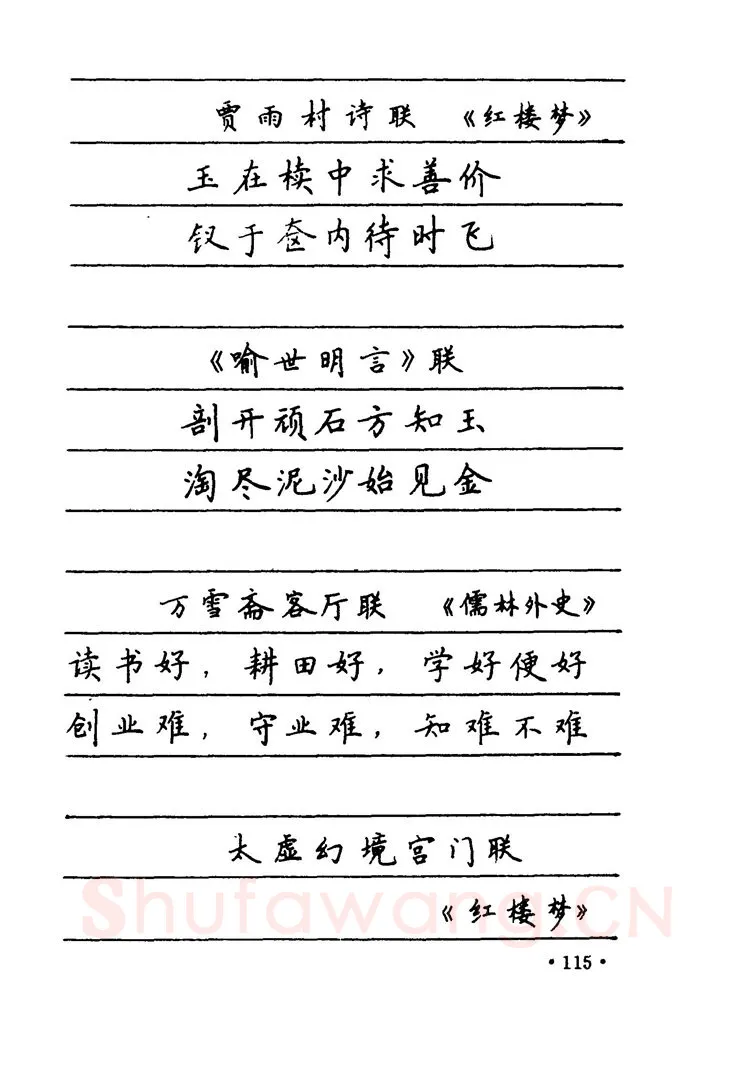 贾雨村诗联 《红楼梦》
玉在椟中求善价
钗于奁内待时飞
《喻世明言》联
剖开顽石方知玉
淘尽泥沙始见金
万雪斋客厅联 《儒林外史》
读书好，耕田好，学好便好
创业难，守业难，知难不难
太虚幻境宫门联
《红楼梦》
Shufawang.CN
·115·